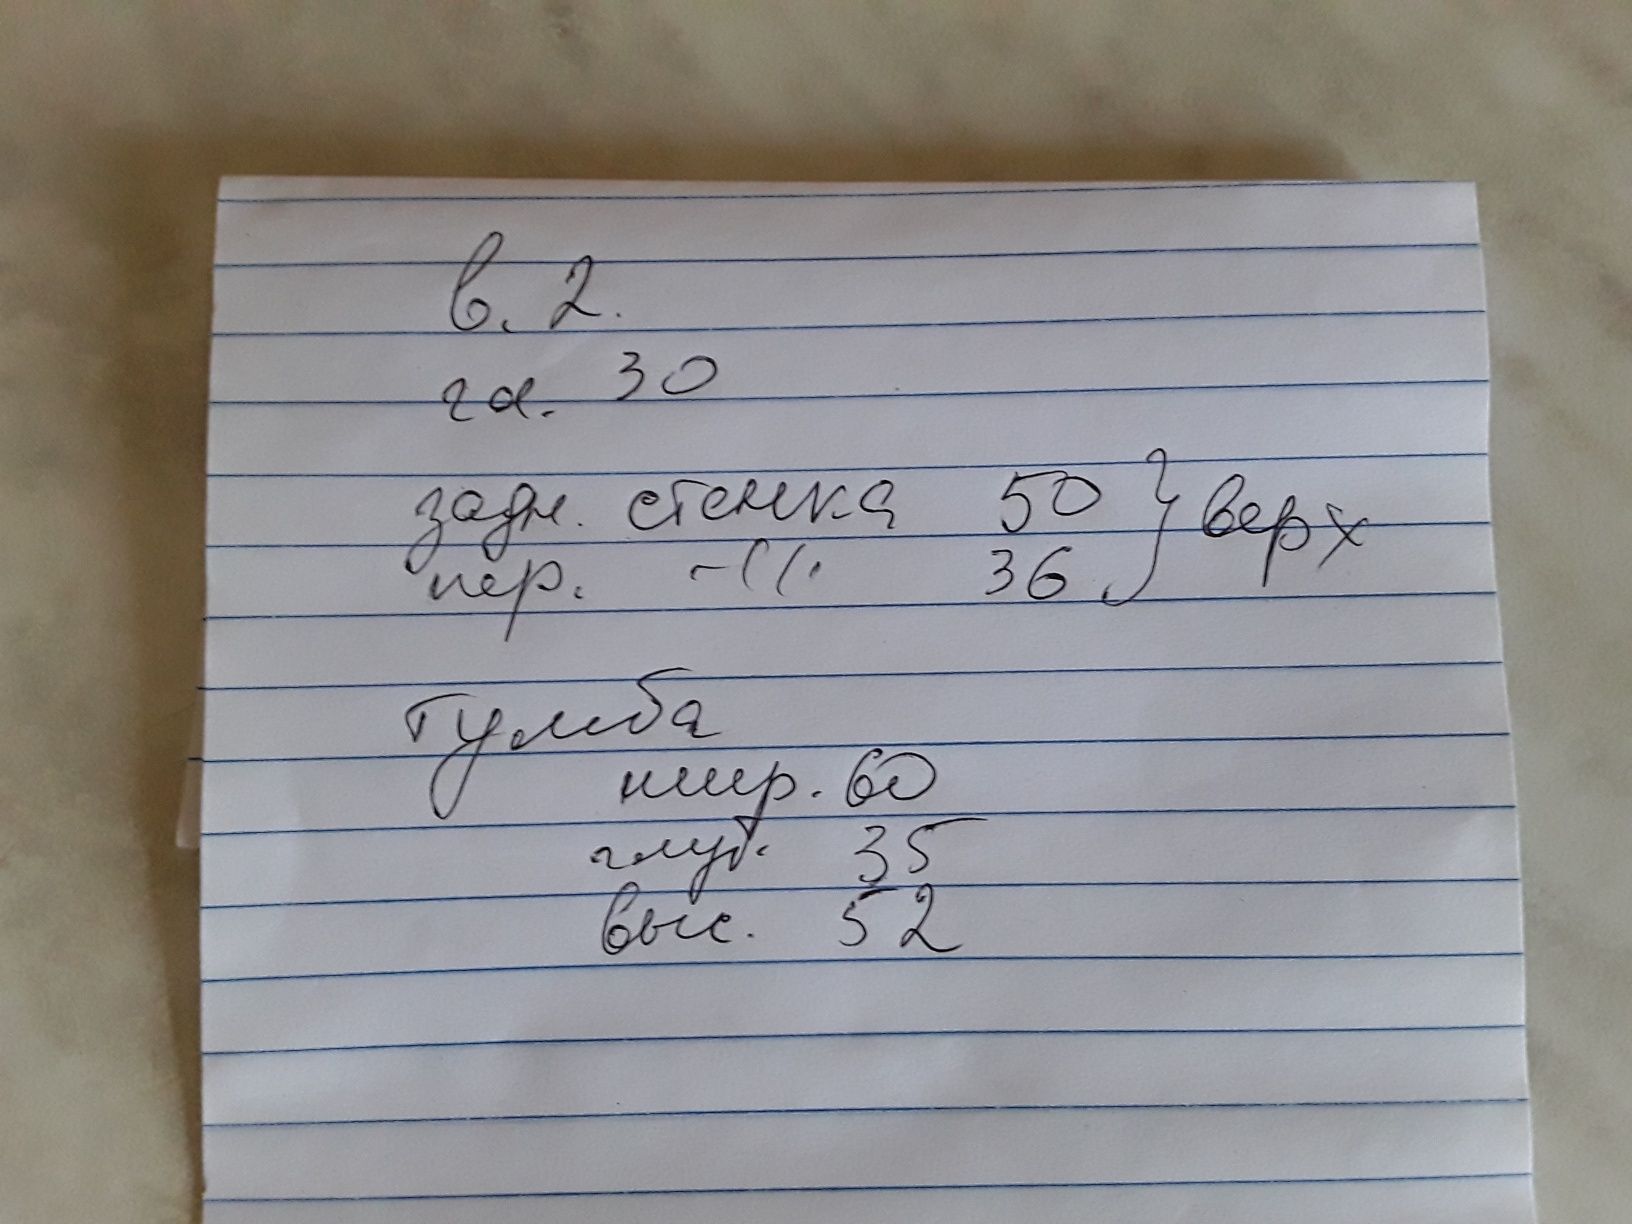 в. 2.
гл. 30
задн. стенка 50 } верх
пер. -//- 36
Тумба
шир. 60
глуб. 35
выс. 52